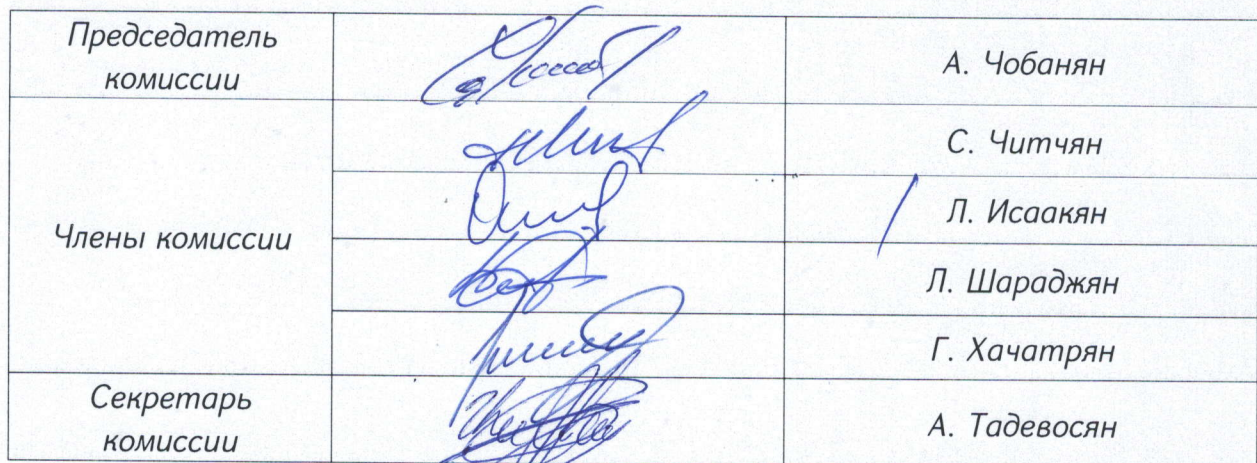 Председатель
комиссии
А. Чобанян
Члены комиссии
С. Читчян
Л. Исаакян
Л. Шараджян
Г. Хачатрян
Секретарь
комиссии
А. Тадевосян